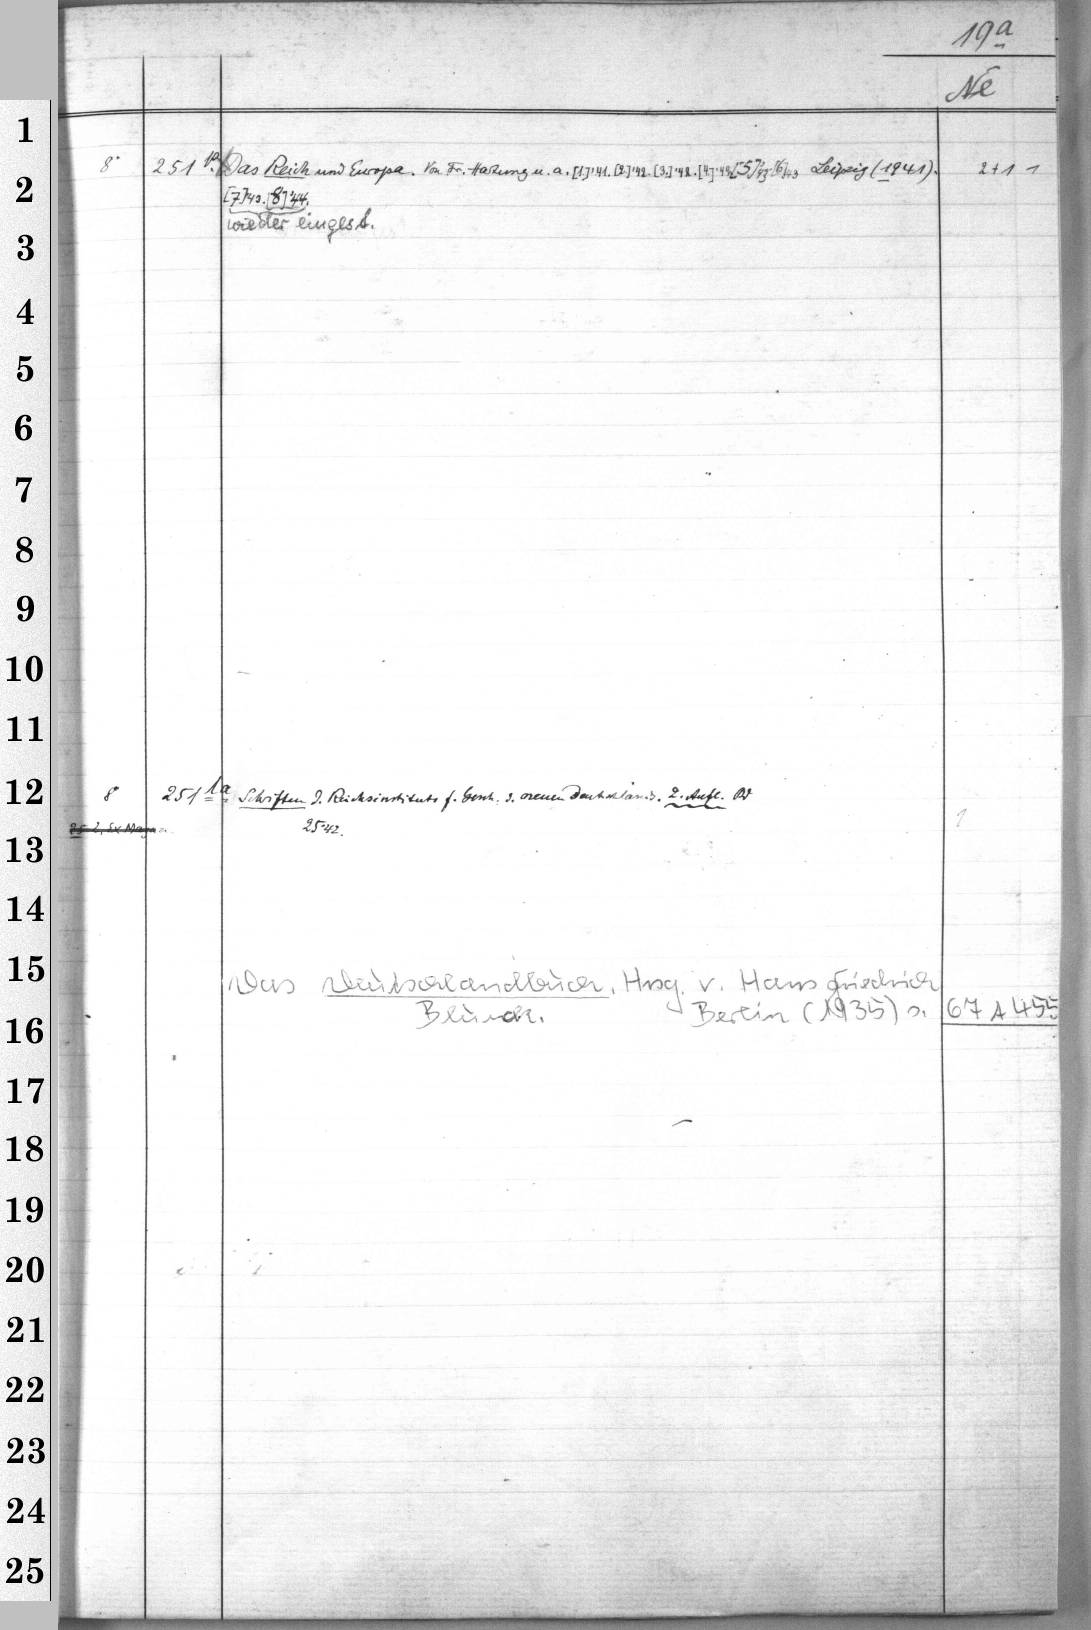 19a
Ne
1
8° 251 Das Reich und Europa. Von Fr. Hartung u. a. [1]'41. [2]'42. [3.]'42. [4]'42 [5]'43 [6]'43 Leipzig (1941). 2+1 1
2
[7]43. [8]'44.
wieder eingest.
3
4
5
6
7
8
9
10
11
12
8° 251 1a Schriften d. Reichsinstituts f. Gesch. d. neuen Deutschlands. 2. Aufl.
25'42.
1
13
14
15
Das Deutschlandbuch. Hrsg. v. Hans Friedrich
Blunck. Berlin (1935) s. 67 A 455
16
17
18
19
20
21
22
23
24
25